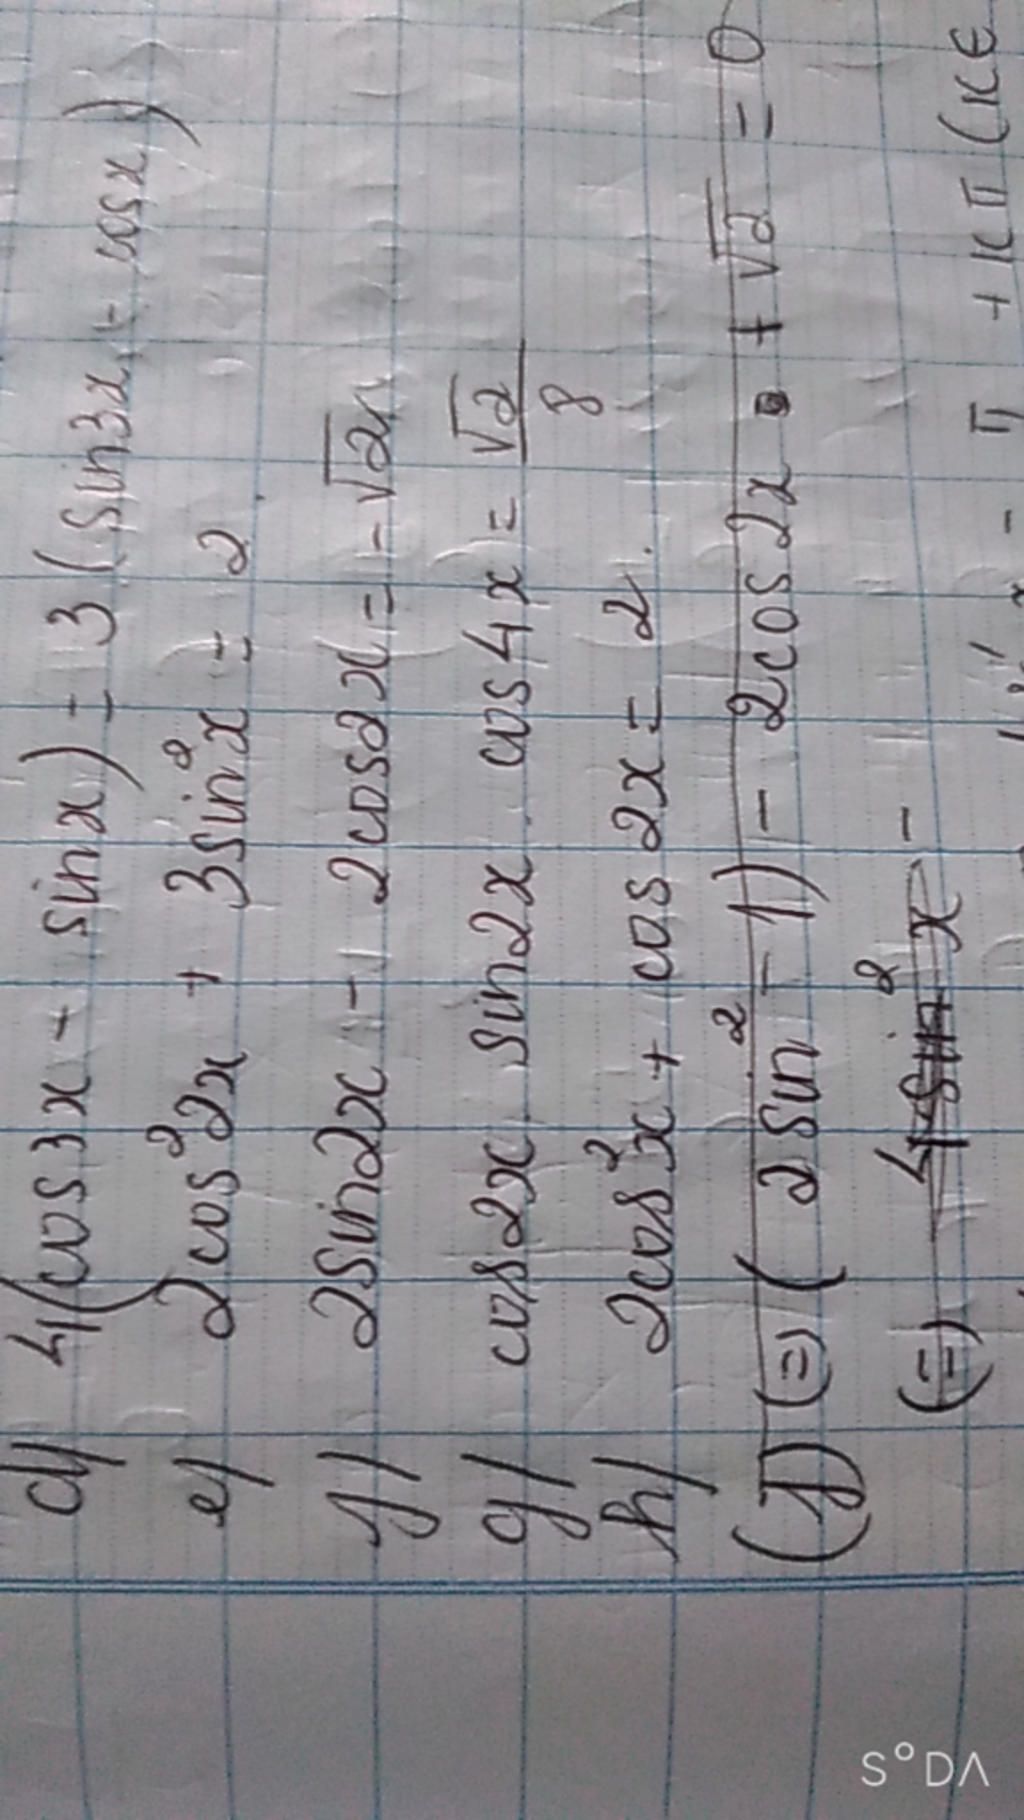 d/ 4(cos3x - sinx) = 3(sin3x + cosx)
e/ 2cos²2x + 3sin²x = 2
f/ 2sin2x - 2cos2x = -√2
g/ cos2x. sin2x. cos4x = √2/8
h/ 2cos²x + cos2x = 2.
(f) (=) (2sin² - 1) - 2cos2x + √2 = 0
(=) 4sin²x -
π + kπ (k∈
S°DA